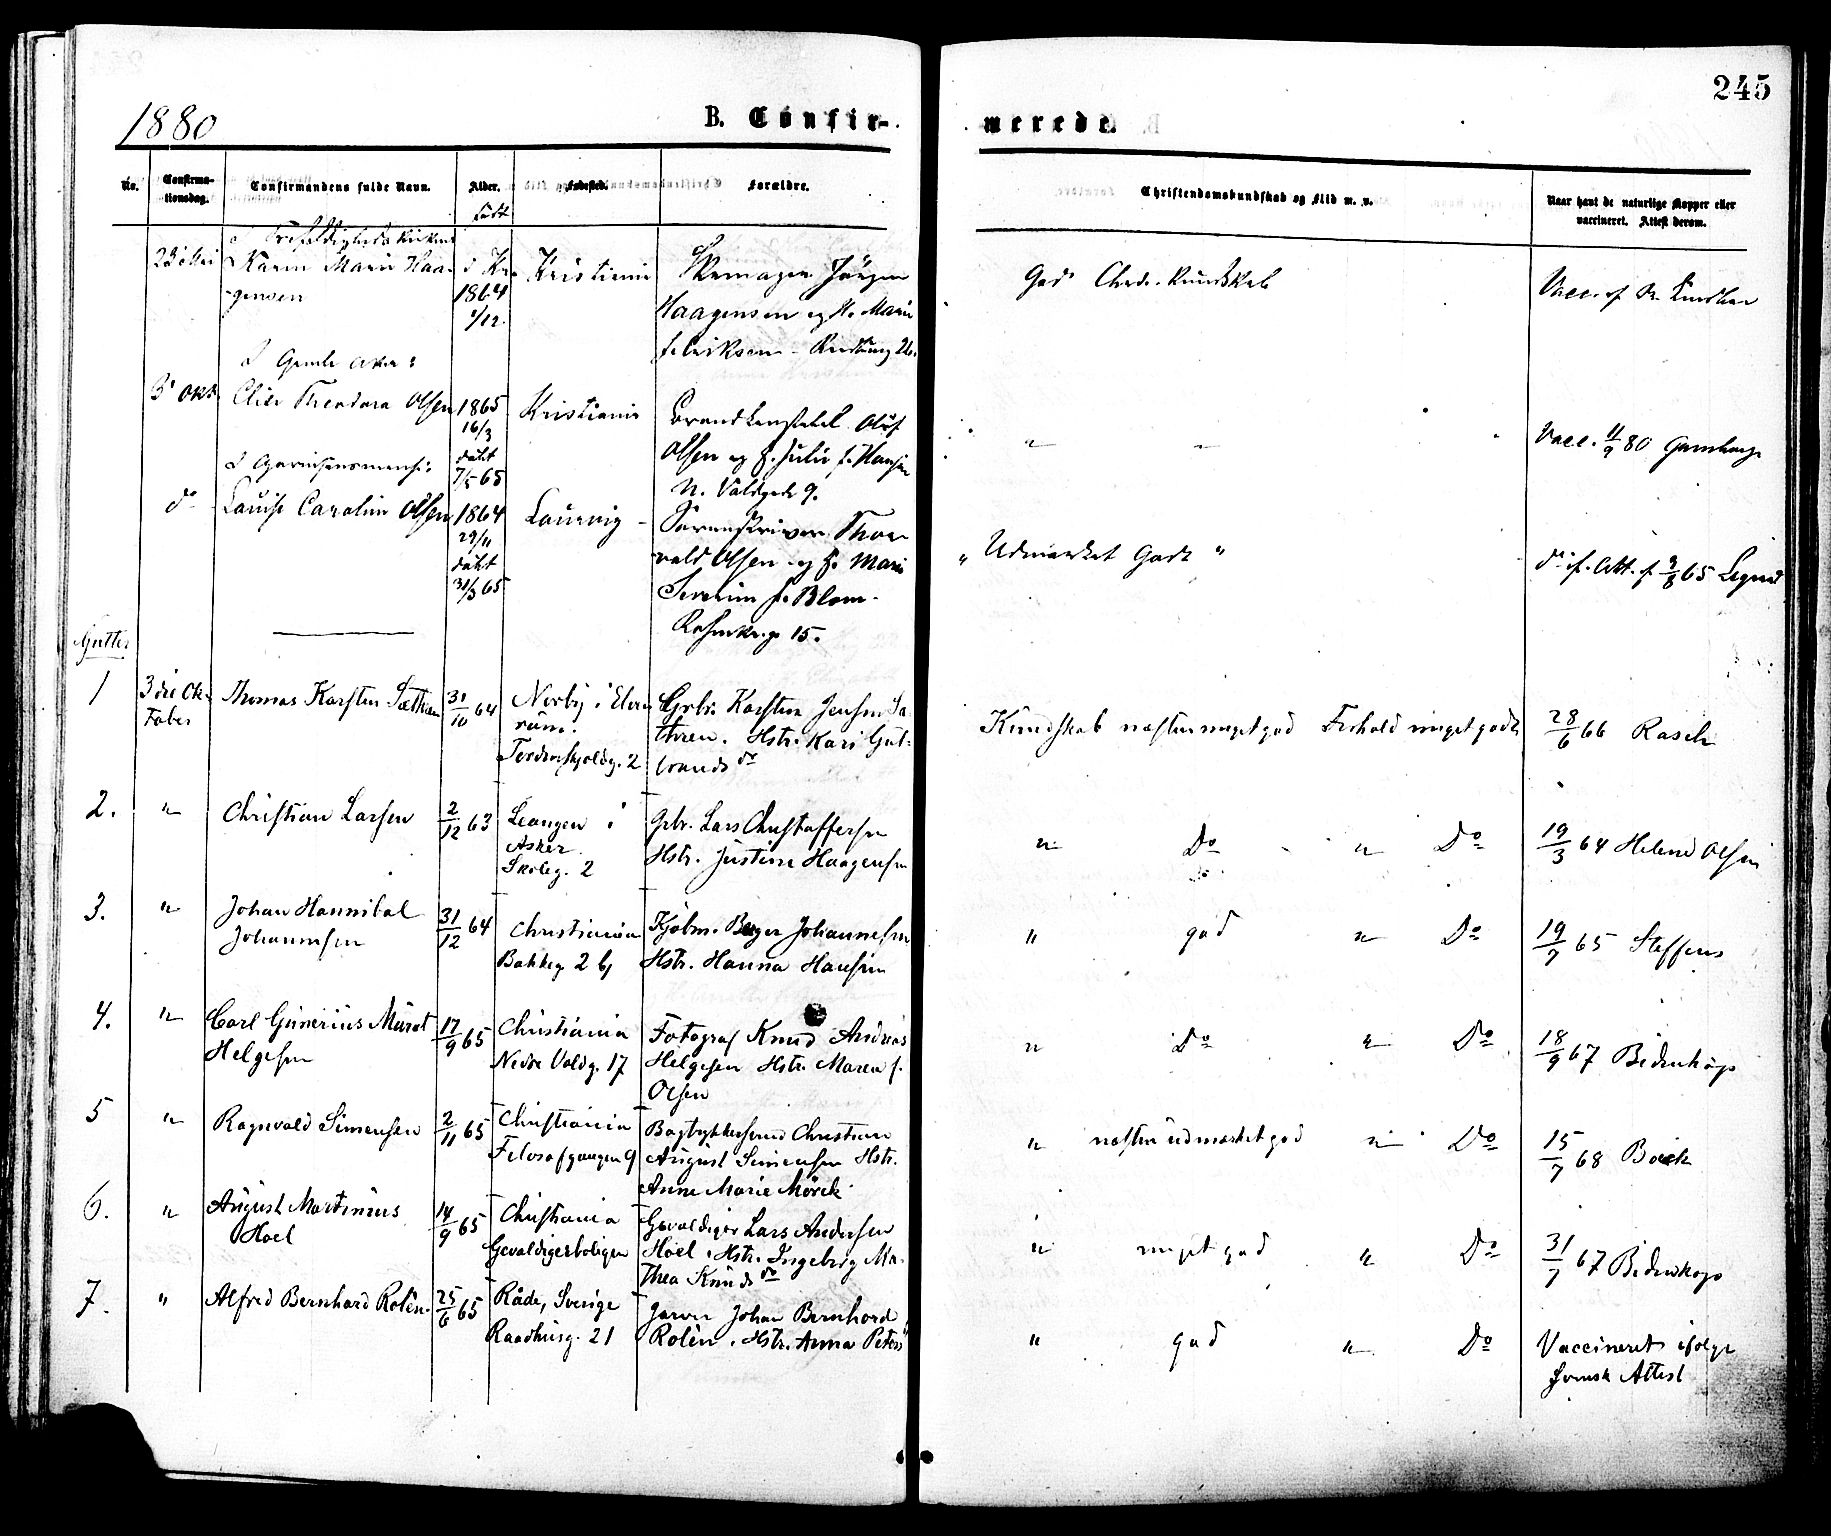 245
1880
B. Confir-
merede.
No.
Confirma-
tionsdag.
Confirmandens fulde Navn.
Alder.
Fødested.
Forældre.
Christendomskundskab og Flid m. v.
Naar havt de naturlige Kopper eller
vaccineret. Attest derom.
født
23 Mai
Karen Marie Haa-
gensen
1864
Kristiania
Skomager Jörgen
Haagensen og H. Marie
God Chrd. Kundskab
Vacc. af
I Gamle Aker:
3 Okt
Theodora Olsen
1865
16/3
døbt
7/5 65
Kristiania
Brandkonstabel Oluf
Olsen og H. Julie f. Hansen
N. Voldgade 9.
"
Vacc. 11/9 80
I Garnisonsmenh:
do
Louise Caroline Olsen
1864
29/11
døbt
31/3 65
Laurvig
Sorenskriver Thor-
vald Olsen og H. Marie
Severine f. Blom.
Rosenkr.g. 15.
" Udmærket Godt "
do if. Att. f. 9/8 65
Gutter
1
3die Ok-
tober
Thomas Karsten Sæthren
31/10 64
Norby i Elve-
rum.
Tordenskjoldg. 2
Grbr. Karsten Jensen Sæ-
thren. Hstr. Kari Gul-
brands do
Kundskab næsten meget god Forhold meget godt
28/6 66 Rasch
2.
"
Christian Larsen
2/12 63
Leangen i
Asker
Skoleg. 2
Grbr. Lars Christoffersen
Hstr. Justine Haagensen
" Do " Do
19/3 64 Helene Olsen
3.
"
Johan Hannibal
Johannesen
31/12 64
Christiania
Bakkeg. 2 b
Kjøbm. Birger Johannesen
Hstr. Hanna Hansen
" god " Do
19/7 65 Steffens
4.
"
Carl Gunerius Marat
Helgesen
17/9 65
Christiania
Nedre Voldg. 17
Fotograf Knud Andreas
Helgesen Hstr. Maren f.
Olsen
" Do " Do
18/9 67 Bidenkap
5
"
Ragnvald Simensen
2/11 65
Christiania
Filosofgangen 9
Bogtrykkersvend Christian
August Simensen Hstr.
Anne Marie Mörck
" næsten udmærket god " Do
15/7 68 Boeck
6.
"
August Martinius
Hoel
14/9 65
Christiania
Gevaldigerboligen
Gevaldiger Lars Andersen
Hoel. Hstr. Ingeborg Ma-
thea Knuds do
" meget god " Do
31/7 67 Bidenkap
7.
"
Alfred Bernhard Rolén.
25/6 65
Råde, Sverige
Raadhusg. 21
Garver Johan Bernhard
Rolén. Hstr. Anna Peters
" god " Do
Vaccineret ifølge
Svensk Attest